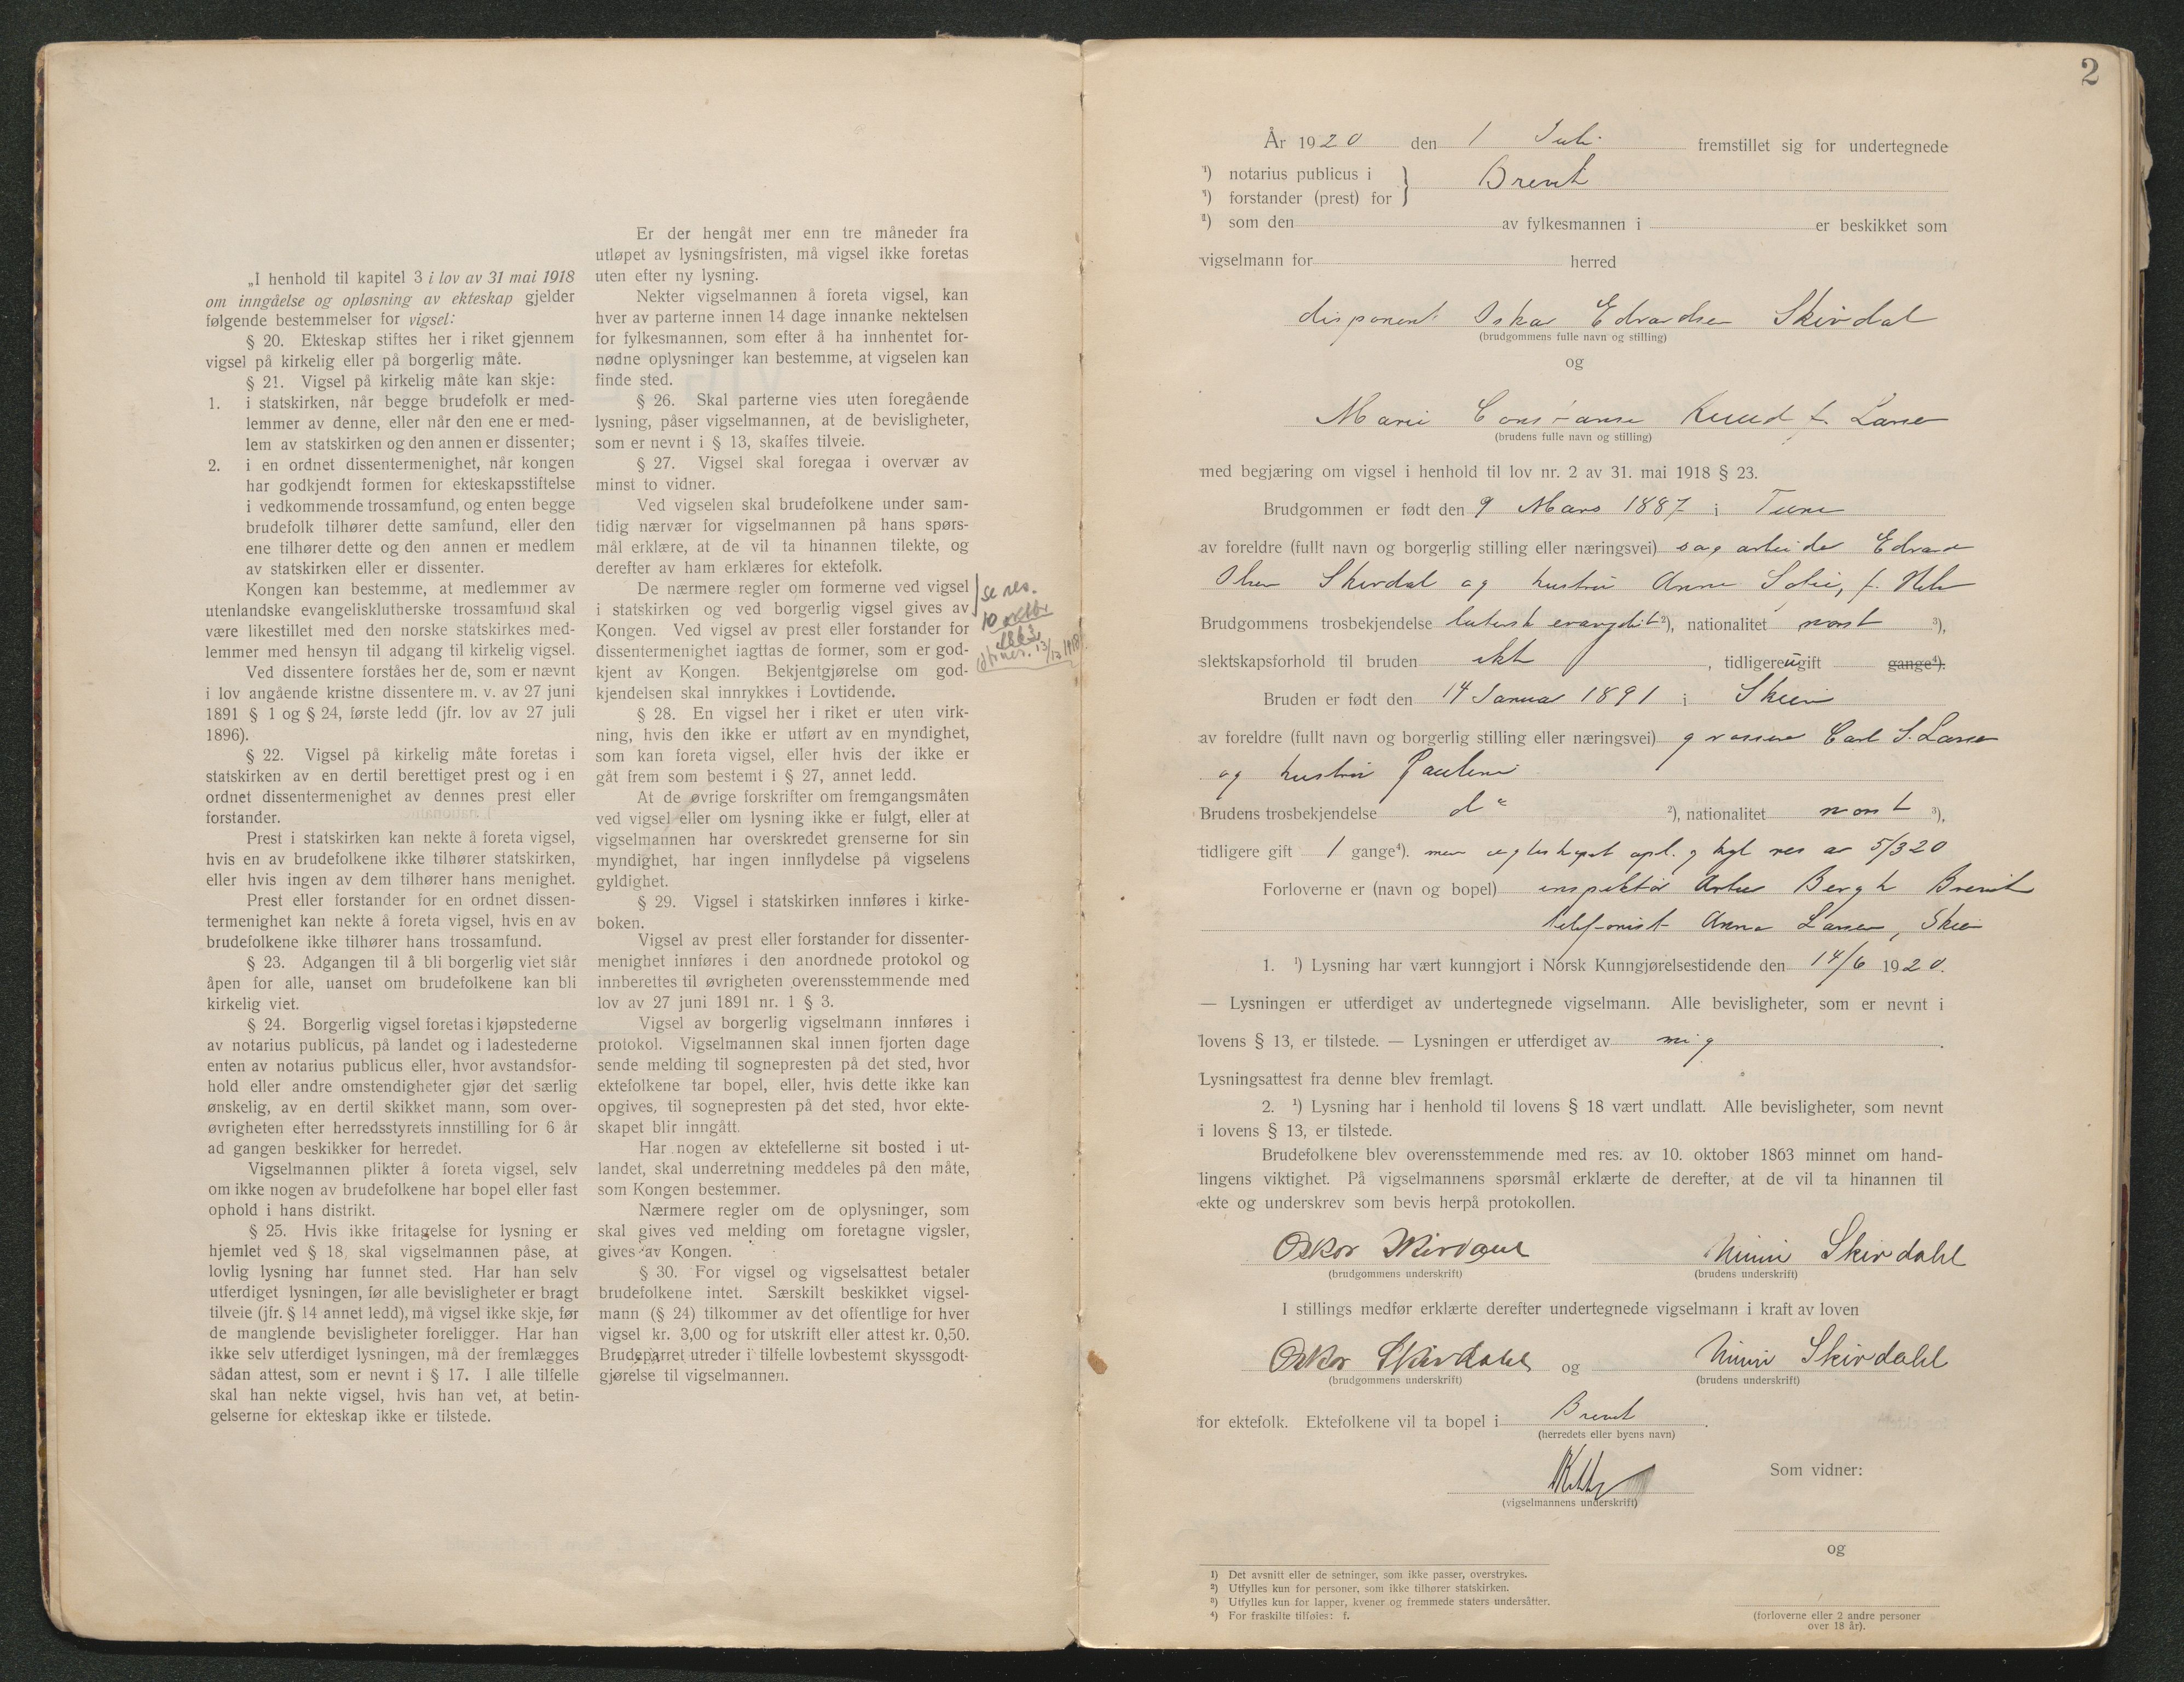 „I henhold til kapitel 3 i lov av 31 mai 1918
om inngåelse og opløsning av ekteskap gjelder
følgende bestemmelser for vigsel:
§ 20. Ekteskap stiftes her i riket gjennem
vigsel på kirkelig eller på borgerlig måte.
§ 21. Vigsel på kirkelig måte kan skje:
1. i statskirken, når begge brudefolk er med-
lemmer av denne, eller når den ene er med-
lem av statskirken og den annen er dissenter;
2. i en ordnet dissentermenighet, når kongen
har godkjendt formen for ekteskapsstiftelse
i vedkommende trossamfund, og enten begge
brudefolk tilhører dette samfund, eller den
ene tilhører dette og den annen er medlem
av statskirken eller er dissenter.
Kongen kan bestemme, at medlemmer av
utenlandske evangeliskluthers­ke trossamfund skal
være likestillet med den norske statskirkes med-
lemmer med hensyn til adgang til kirkelig vigsel.
Ved dissentere forståes her de, som er nævnt
i lov angående kristne dissentere m. v. av 27 juni
1891 § 1 og § 24, første ledd (jfr. lov av 27 juli
1896).
§ 22. Vigsel på kirkelig måte foretas i
statskirken av en dertil berettiget prest og i en
ordnet dissentermenighet av dennes prest eller
forstander.
Prest i statskirken kan nekte å foreta vigsel,
hvis en av brudefolkene ikke tilhører statskirken,
eller hvis ingen av dem tilhører hans menighet.
Prest eller forstander for en ordnet dissen-
termenighet kan nekte å foreta vigsel, hvis en av
brudefolkene ikke tilhører hans trossamfund.
§ 23. Adgangen til å bli borgerlig viet står
åpen for alle, uanset om brudefolkene kan bli
kirkelig viet.
§ 24. Borgerlig vigsel foretas i kjøpstederne
av notarius publicus, på landet og i ladestederne
enten av notarius publicus eller, hvor avstandsfor-
hold eller andre omstendigheter gjør det særlig
ønskelig, av en dertil skikket mann, som over-
øvrigheten efter herredsstyrets innstilling for 6 år
ad gangen beskikker for herredet.
Vigselmannen plikter å foreta vigsel, selv
om ikke nogen av brudefolkene har bopel eller fast
ophold i hans distrikt.
§ 25. Hvis ikke fritagelse for lysning er
hjemlet ved § 18, skal vigselmannen påse, at
lovlig lysning har funnet sted. Har han selv
utferdiget lysningen, før alle bevisligheter er bragt
tilveie (jfr. § 14 annet ledd), må vigsel ikke skje, før
de manglende bevisligheter foreligger. Har han
ikke selv utferdiget lysningen, må der fremlægges
sådan attest, som er nevnt i § 17. I alle tilfelle
skal han nekte vigsel, hvis han vet, at betin-
gelserne for ekteskap ikke er tilstede.
Er der hengåt mer enn tre måneder fra
utløpet av lysningsfristen, må vigsel ikke foretas
uten efter ny lysning.
Nekter vigselmannen å foreta vigsel, kan
hver av parterne innen 14 dage innanke nektelsen
for fylkesmannen, som efter å ha innhentet for-
nødne oplysninger kan bestemme, at vigselen kan
finde sted.
§ 26. Skal parterne vies uten foregående
lysning, påser vigselmannen, at de bevisligheter,
som er nevnt i § 13, skaffes tilveie.
§ 27. Vigsel skal foregaa i overvær av
minst to vidner.
Ved vigselen skal brudefolkene under sam-
tidig nærvær for vigselmannen på hans spørs-
mål erklære, at de vil ta hinannen tilekte, og
derefter av ham erklæres for ektefolk.
De nærmere regler om formerne ved vigsel
i statskirken og ved borgerlig vigsel gives av
Kongen. Ved vigsel av prest eller forstander for
dissentermenighet iagttas de former, som er god-
kjent av Kongen. Bekjentgjørelse om god-
kjendelsen skal innrykkes i Lovtidende.
§ 28. En vigsel her i riket er uten virk-
ning, hvis den ikke er utført av en myndighet,
som kan foreta vigsel, eller hvis der ikke er
gåt frem som bestemt i § 27, annet ledd.
At de øvrige forskrifter om fremgangsmåten
ved vigsel eller om lysning ikke er fulgt, eller at
vigselmannen har overskredet grenserne for sin
myndighet, har ingen innflydelse på vigselens
gyldighet.
§ 29. Vigsel i statskirken innføres i kirke-
boken.
Vigsel av prest eller forstander for dissenter-
menighet innføres i den anordnede protokol og
innberettes til øvrigheten overensstemmende med
lov av 27 juni 1891 nr. 1 § 3.
Vigsel av borgerlig vigselmann innføres i
protokol. Vigselmannen skal innen fjorten dage
sende melding til sognepresten på det sted, hvor
ektefolkene tar bopel, eller, hvis dette ikke kan
opgives, til sognepresten på det sted, hvor ekte-
skapet blir inngått.
Har nogen av ektefellerne sit bosted i ut-
landet, skal underretning meddeles på den måte,
som Kongen bestemmer.
Nærmere regler om de oplysninger, som
skal gives ved melding om foretagne vigsler,
gives av Kongen.
§ 30. For vigsel og vigselsattest betaler
brudefolkene intet. Særskilt beskikket vigsel-
mann (§ 24) tilkommer av det offentlige for hver
vigsel kr. 3,00 og for utskrift eller attest kr. 0,50.
Brudeparret utreder i tilfelle lovbestemt skyssgodt-
gjørelse til vigselmannen.
se res.
10 oktbr
1863
13/12 1918
2
År 1920 den 1 Juli fremstillet sig for undertegnede
¹) notarius publicus i
¹) forstander (prest) for } Brevik
¹) som den av fylkesmannen i er beskikket som
vigselmann for herred
disponent Oskar Edvardsen Skirdal
(brudgommens fulle navn og stilling)
og
Marie Constanse Ruud f. Larsen
(brudens fulle navn og stilling)
med begjæring om vigsel i henhold til lov nr. 2 av 31. mai 1918 § 23.
Brudgommen er født den 9 Mars 1887 i Tune
av foreldre (fullt navn og borgerlig stilling eller næringsvei) sagarbeider Edvard
Olsen Skirdal og hustru Anne Sofie, f.
Brudgommens trosbekjendelse luthersk evangelisk ²), nationalitet norsk ³),
slektskapsforhold til bruden ikke, tidligere ugift gange⁴).
Bruden er født den 14 Januar 1891 i Skien
av foreldre (fullt navn og borgerlig stilling eller næringsvei) grosserer Carl S. Larsen
og hustru Pauline
Brudens trosbekjendelse do ²), nationalitet norsk ³),
tidligere gift 1 gange⁴). men egteskapet opl. v kgl res av 5/3 20
Forloverne er (navn og bopel) inspektør Bergh Brevik
telefonist Anna Larsen, Skien
1. ¹) Lysning har vært kunngjort i Norsk Kunngjørelsestidende den 14/6 1920.
— Lysningen er utferdiget av undertegnede vigselmann. Alle bevisligheter, som er nevnt i
lovens § 13, er tilstede. — Lysningen er utferdiget av mig.
Lysningsattest fra denne blev fremlagt.
2. ¹) Lysning har i henhold til lovens § 18 vært undlatt. Alle bevisligheter, som nevnt
i lovens § 13, er tilstede.
Brudefolkene blev overensstemmende med res. av 10. oktober 1863 minnet om hand-
lingens viktighet. På vigselmannens spørsmål erklærte de derefter, at de vil ta hinannen til
ekte og underskrev som bevis herpå protokollen.
Oskar Skirdahl Minni Skirdahl
(brudgommens underskrift) (brudens underskrift)
I stillings medfør erklærte derefter undertegnede vigselmann i kraft av loven
Oskar Skirdahl og Minni Skirdahl
(brudgommens underskrift) (brudens underskrift)
for ektefolk. Ektefolkene vil ta bopel i Brevik.
(herredets eller byens navn)
Som vidner:
(vigselmannens underskrift)
og
(forloverne eller 2 andre personer
over 18 år).
¹) Det avsnitt eller de setninger, som ikke passer, overstrykes.
²) Utfylles kun for personer, som ikke tilhører statskirken.
³) Utfylles kun for lapper, kvener og fremmede staters undersåtter.
⁴) For fraskilte tilføies: f.